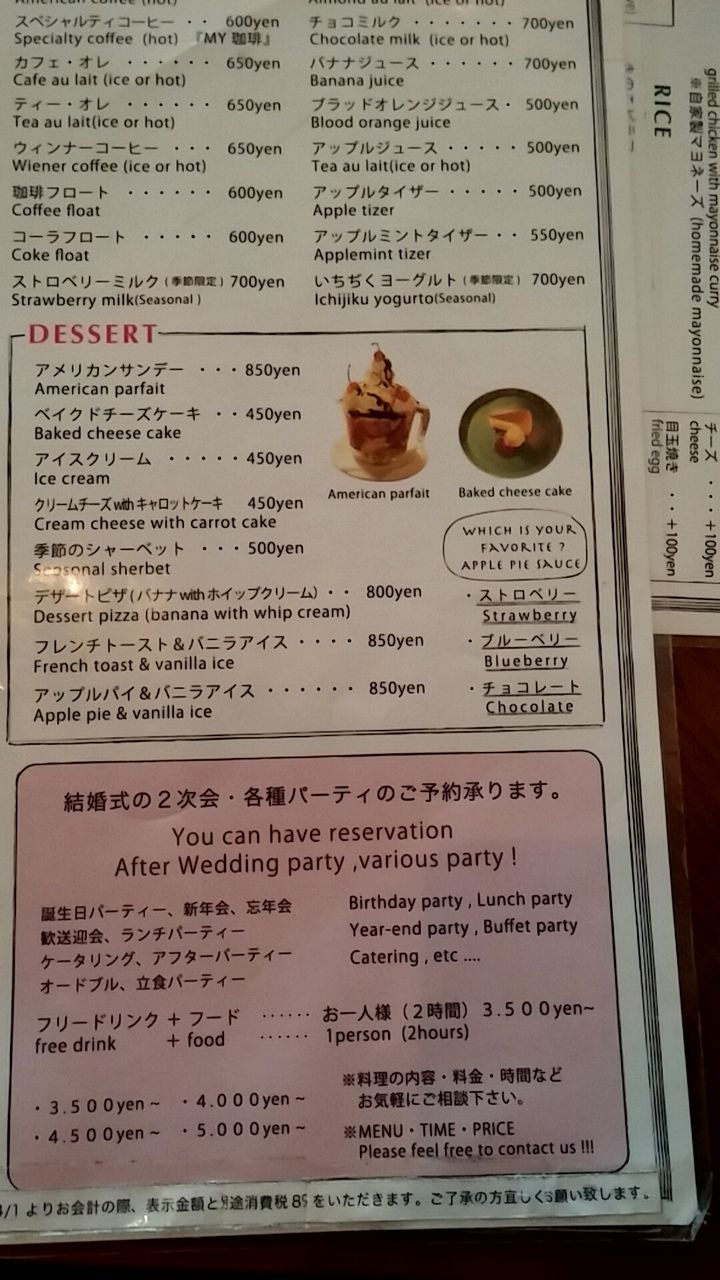 (ice or hot)
スペシャルティコーヒー ・・ 600yen
Specialty coffee (hot) 『MY 珈琲』
カフェ・オレ ・・・・・・ 650yen
Cafe au lait (ice or hot)
ティー・オレ ・・・・・・ 650yen
Tea au lait(ice or hot)
ウィンナーコーヒー ・・・ 650yen
Wiener coffee (ice or hot)
珈琲フロート ・・・・・・ 600yen
Coffee float
コーラフロート ・・・・・ 600yen
Coke float
ストロベリーミルク(季節限定) 700yen
Strawberry milk(Seasonal)
チョコミルク ・・・・・・・ 700yen
Chocolate milk (ice or hot)
バナナジュース ・・・・・・ 700yen
Banana juice
ブラッドオレンジジュース・ 500yen
Blood orange juice
アップルジュース ・・・・・ 500yen
Tea au lait(ice or hot)
アップルタイザー ・・・・・ 500yen
Apple tizer
アップルミントタイザー・・ 550yen
Applemint tizer
いちぢくヨーグルト(季節限定) 700yen
Ichijiku yogurto(Seasonal)
DESSERT
アメリカンサンデー ・・・ 850yen
American parfait
ベイクドチーズケーキ ・・ 450yen
Baked cheese cake
アイスクリーム ・・・・・ 450yen
Ice cream
クリームチーズwithキャロットケーキ 450yen
Cream cheese with carrot cake
季節のシャーベット ・・・ 500yen
Seasonal sherbet
デザートピザ(バナナwithホイップクリーム)・・ 800yen
Dessert pizza (banana with whip cream)
フレンチトースト&バニラアイス ・・・・ 850yen
French toast & vanilla ice
アップルパイ&バニラアイス ・・・・・・ 850yen
Apple pie & vanilla ice
American parfait
Baked cheese cake
WHICH IS YOUR
FAVORITE ?
APPLE PIE SAUCE
・ストロベリー
Strawberry
・ブルーベリー
Blueberry
・チョコレート
Chocolate
結婚式の2次会・各種パーティのご予約承ります。
You can have reservation
After Wedding party ,various party !
誕生日パーティー、新年会、忘年会
歓送迎会、ランチパーティー
ケータリング、アフターパーティー
オードブル、立食パーティー
Birthday party , Lunch party
Year-end party , Buffet party
Catering , etc ....
フリードリンク + フード ······ お一人様(2時間) 3.500yen~
free drink + food ······ 1person (2hours)
・3.500yen~ ・4.000yen~
・4.500yen~ ・5.000yen~
※料理の内容・料金・時間など
お気軽にご相談下さい。
※MENU・TIME・PRICE
Please feel free to contact us !!!
4/1 よりお会計の際、表示金額と別途消費税8%をいただきます。ご了承の方宜しくお願い致します。
grilled chicken with mayonnaise curry
※自家製マヨネーズ (homemade mayonnaise)
RICE
チーズ ・・・+100yen
cheese
目玉焼き ・・+100yen
fried egg